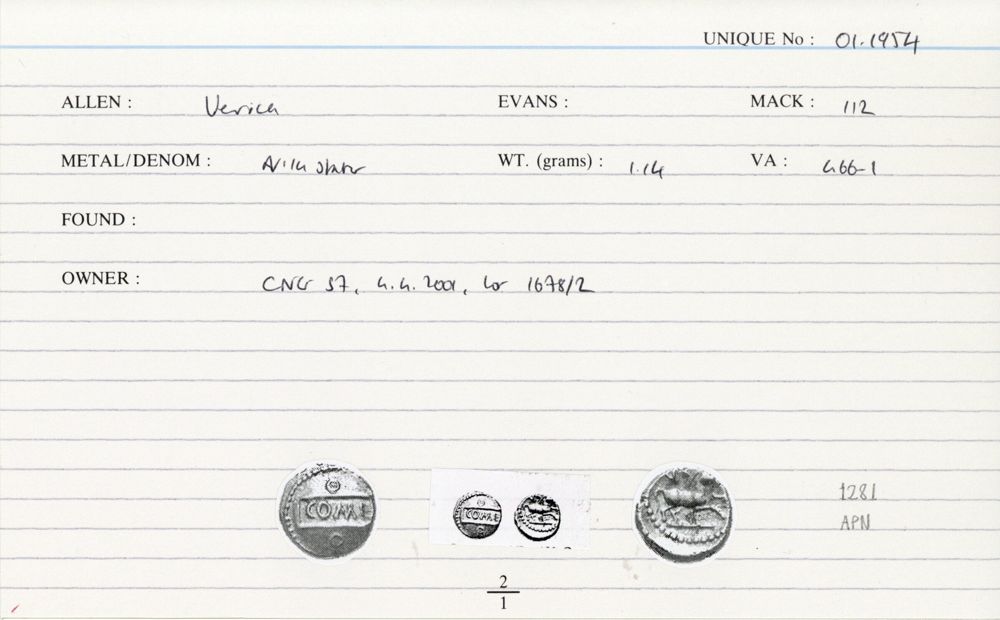 UNIQUE No : 01.1954
ALLEN : Verica EVANS : MACK : 112
METAL/DENOM : AV 1/4 stater WT. (grams) : 1.14 VA : 466-1
FOUND :
OWNER : CNG 57, 4.4.2001, lot 1678/2
COMMF
COMMF
1281
APN
2
1